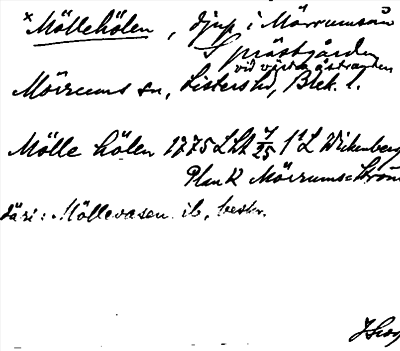 × Möllehölen, djup i Mörrumsån
S prästgården
vid västra åstranden
Mörrums sn, Listers hd, Blek. l.
Mölle hölen 1775 LSA 7/25 1:1 L Wickenberg
Plan K Mörrums Ström
däri: Möllevasen ib, beskr.